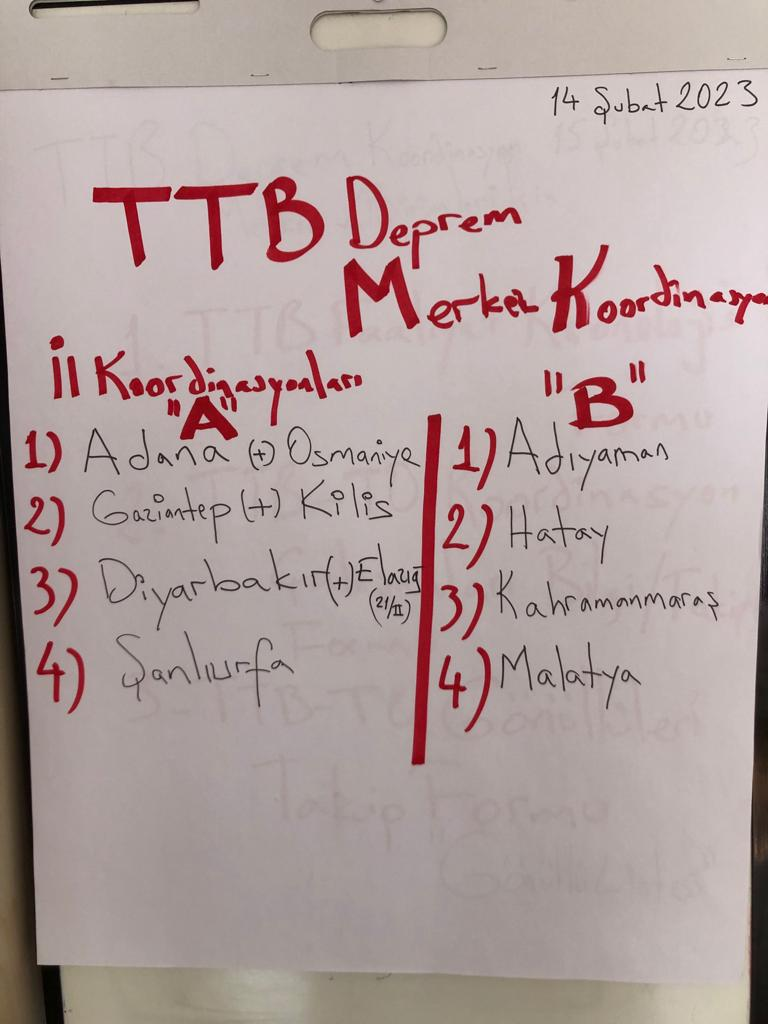 14 Şubat 2023
TTB Deprem
Merkez Koordinasyo
İl Koordinasyonları
"A"
1) Adana (+) Osmaniye
2) Gaziantep (+) Kilis
3) Diyarbakır (+) Elazığ
(21/II)
4) Şanlıurfa
"B"
1) Adıyaman
2) Hatay
3) Kahramanmaraş
4) Malatya